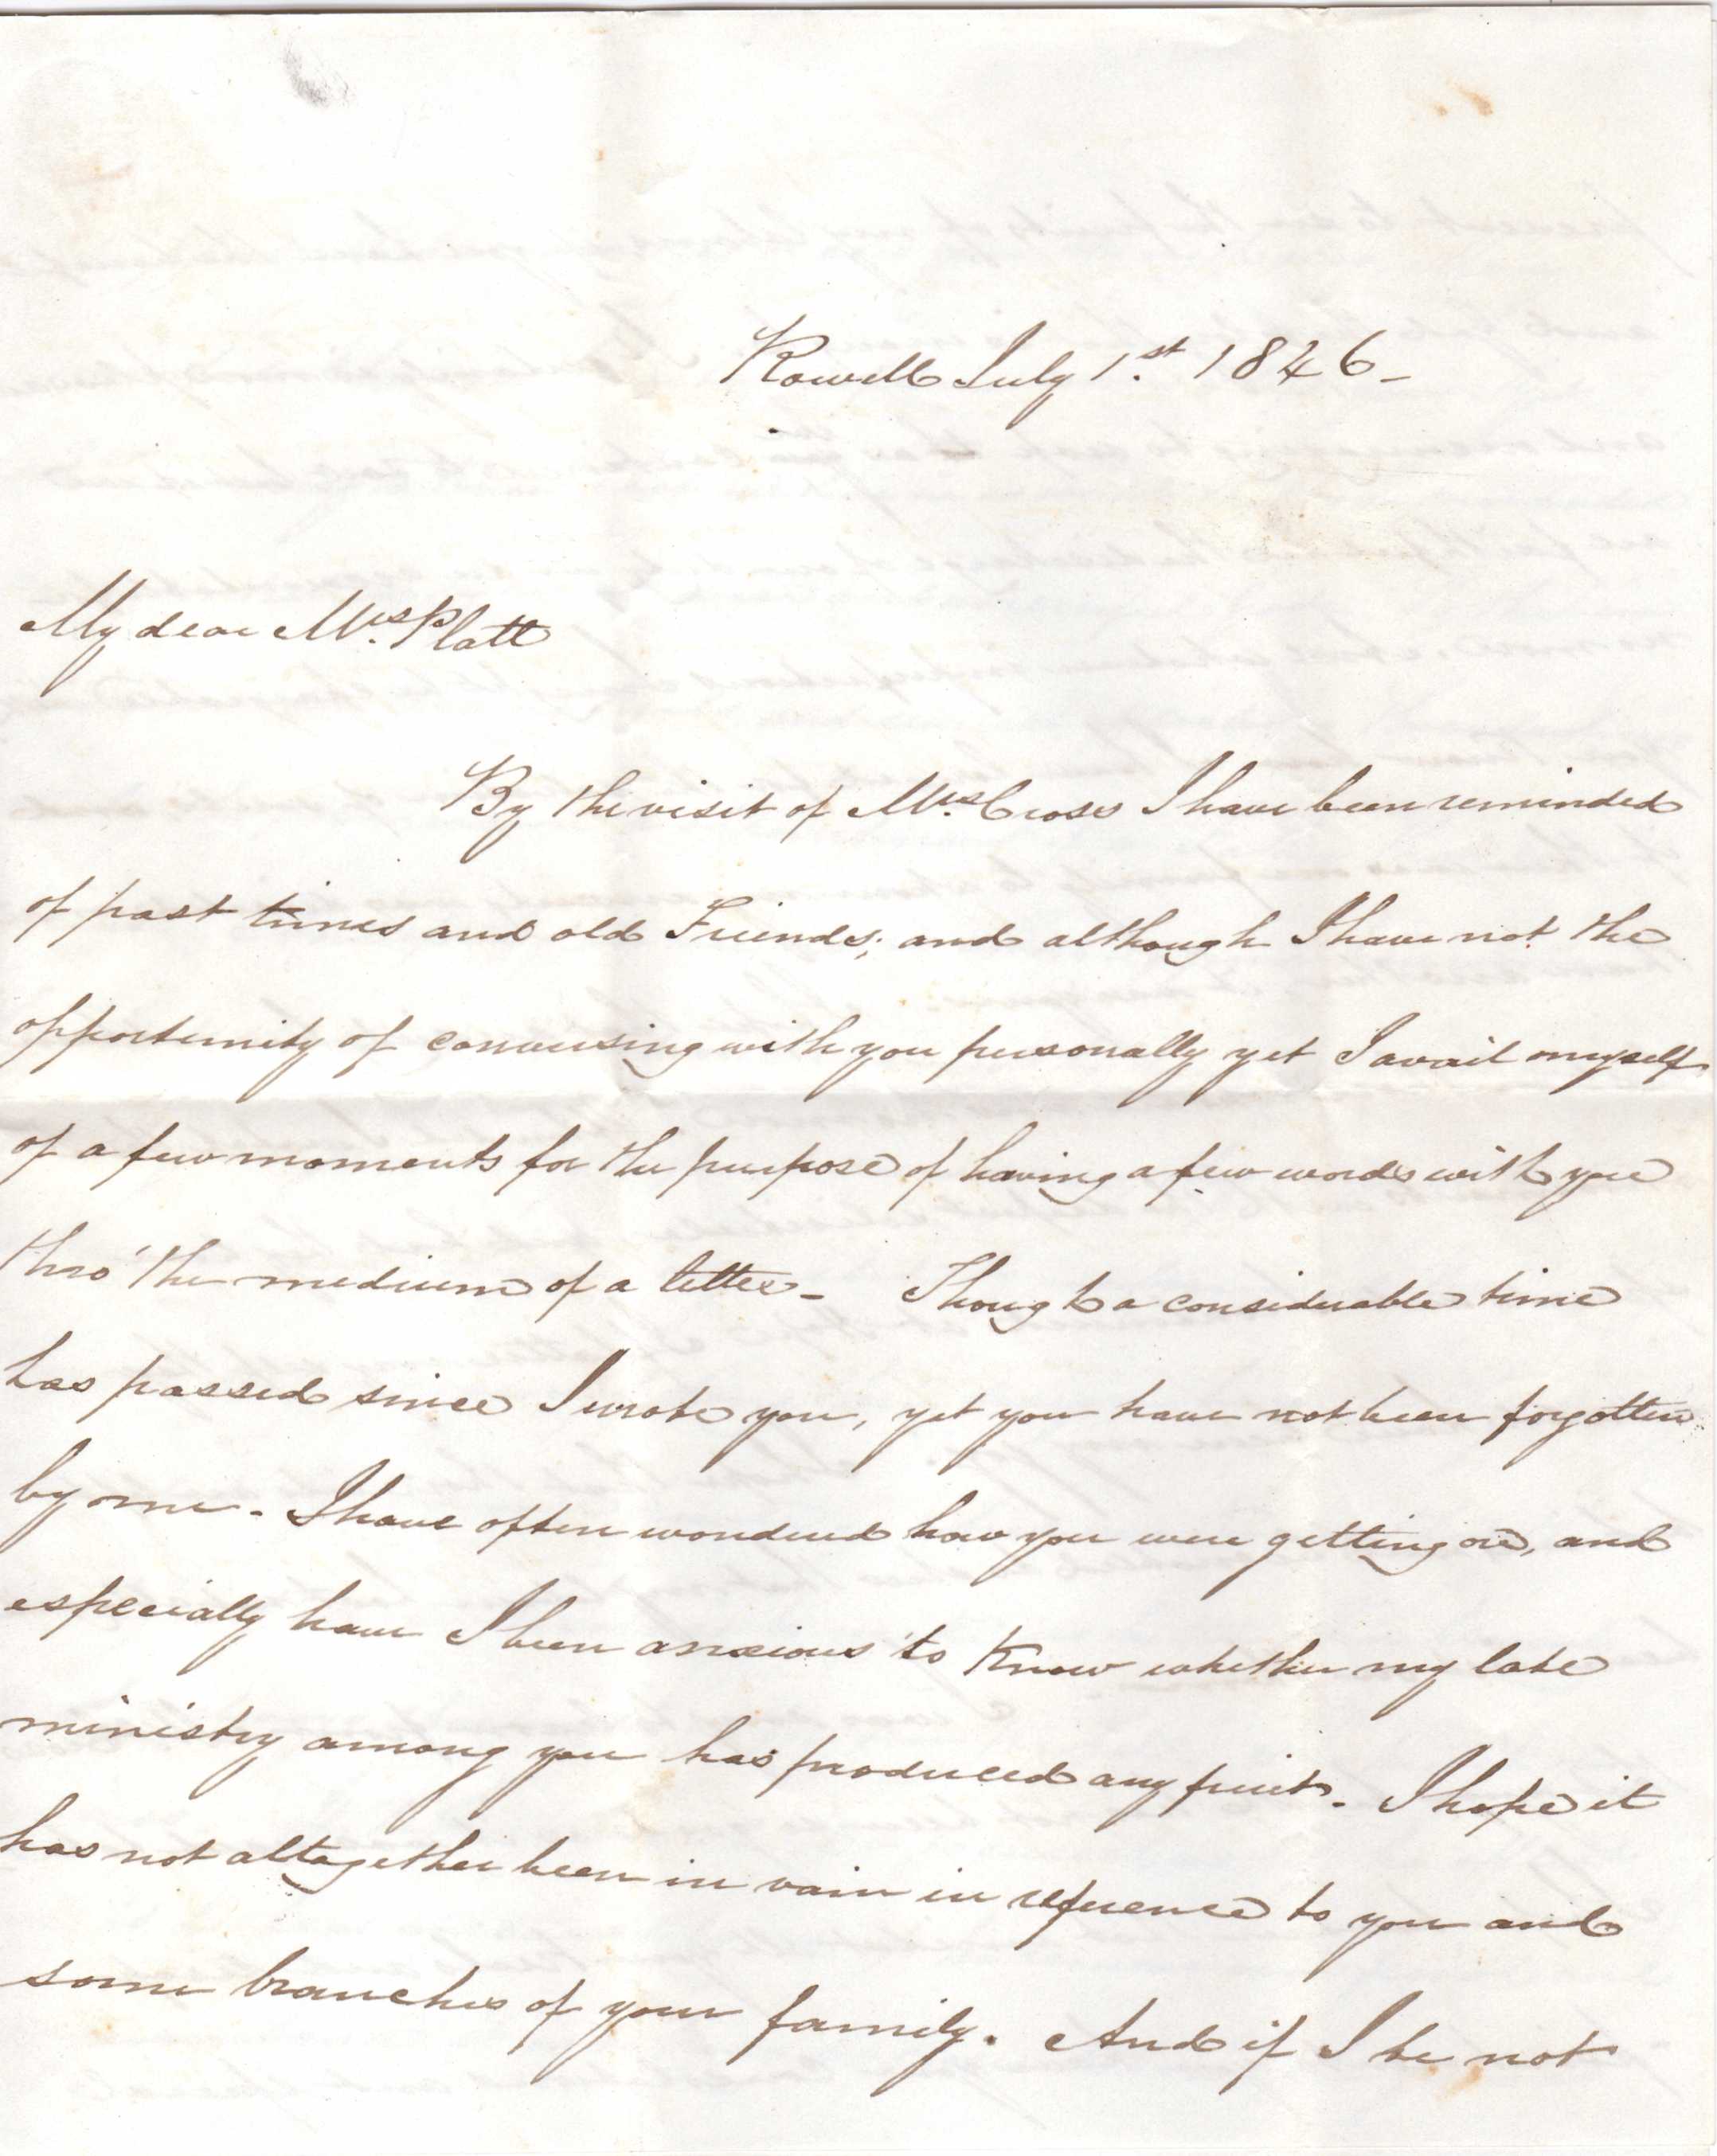 Rowell July 1st 1846 -
My dear Mrs Platt
By the visit of Mrs Cross I have been reminded
of past times and old Friends; and although I have not the
opportunity of conversing with you personally yet I avail myself
of a few moments for the purpose of having a few words with you
thro' the medium of a letter - Though a considerable time
has passed since I wrote you, yet you have not been forgotten
by me - I have often wondered how you were getting on, and
especially have I been anxious to know whether my late
ministry among you has produced any fruit. I hope it
has not altogether been in vain in reference to you and
some branches of your family. And if I be not